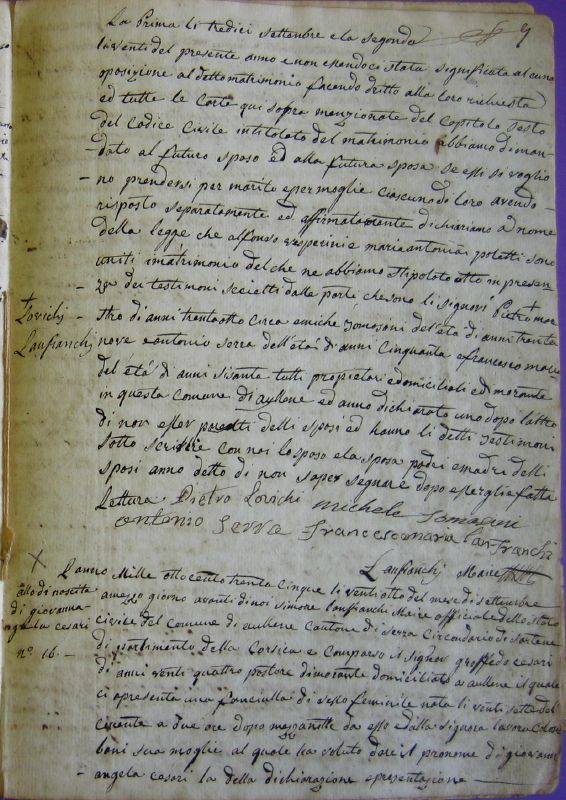 La Prima li tredici settembre e la seconda
li venti del presente anno e non essendoci stata significata alcuna
oposizione al detto matrimonio facendo dritto alla loro richiesta
ed tutte le carte qui sopra menzionate del Capitolo sesto
del Codice Civile intitolato del matrimonio abbiamo diman-
dato al futuro sposo ed alla futura sposa se essi si voglio
no prendersi per marito e per moglie ciascuno di loro avendo
risposto separatamente ed affirmatamente dichiariamo ad nome
della legge che alfonso vesperini e maria antonia poletti sono
uniti in matrimonio del che ne abbiamo stipolato atto in presen
za dei testimoni sccietti dalle parte che sono li signori Pietro
Lovichi di anni trentotto circa e michele Tomasini dell'età di anni trenta
Lanfranchj nove e antonio serra dell'età di anni cinquanta e francesco maria
del'età di anni sisanta tutti propietari e domiciliati ed morante
in questa comune di aullene ed anno dichiarato uno dopo l'altro
di non esser parenti delli sposi ed hanno li detti testimoni
sotto scritto con noi lo sposo e la sposa padri e madre delli
sposi anno detto di non saper segnare dopo essergliè fatta
lettura Pietro Lovichi Michele Tomasini
antonio Serra Francescomaria Lanfranchi
Lanfranchj Maire
atto di nascita
di giovanna
angela cesari
n.º 16.
L'anno Mille otto cento trenta cinque li ventiotto del mese di settembre
a mezzo giorno avanti di noi Simone lanfranchi Maire officiale dello stato
civile del Comune di aullene Cantone di serra Circondario di sartene
dipartimento della Corsica è Comparso il signor goffredo cesari
di anni venti quattro pastore dimorante domiciliato a aullene il quale
ci apresenta una fanciulla di sesso feminile nata li venti sette del
corente a due ore dopo mezzanotte da esso e dalla signora
boni sua moglie al quale ha voluto dare il pronome di giovann
angela cesari la della dichiarazione e presentazione